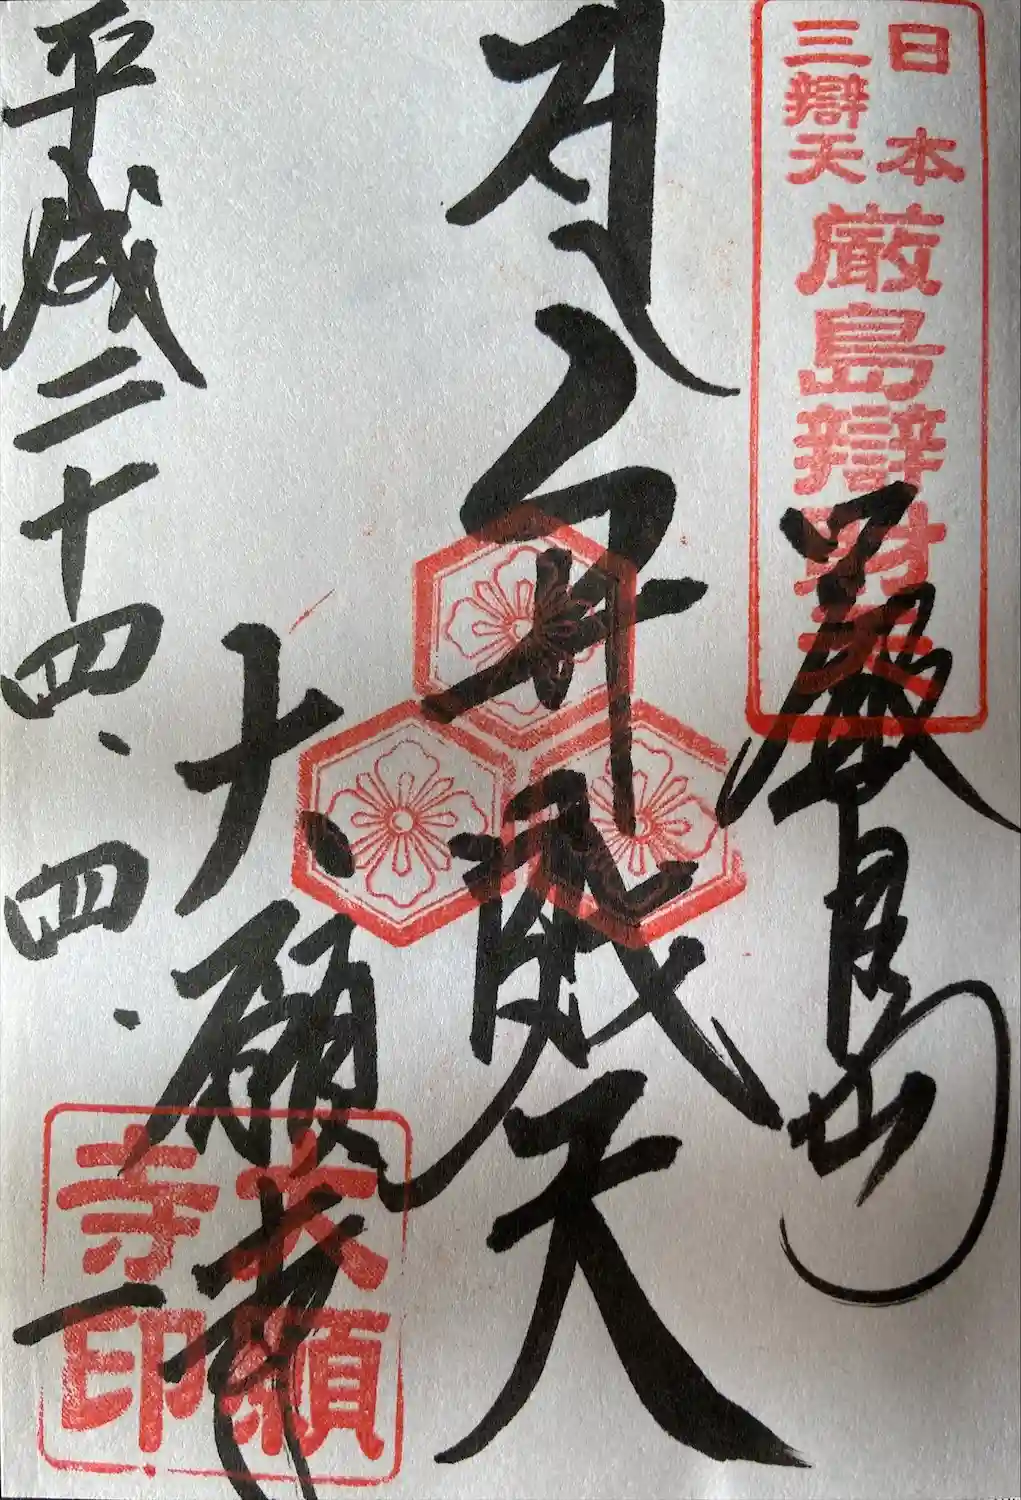 日本
三辯天
厳島辯財天
厳島
弁財天
大願寺
平成二十四、四、一
大願
寺印